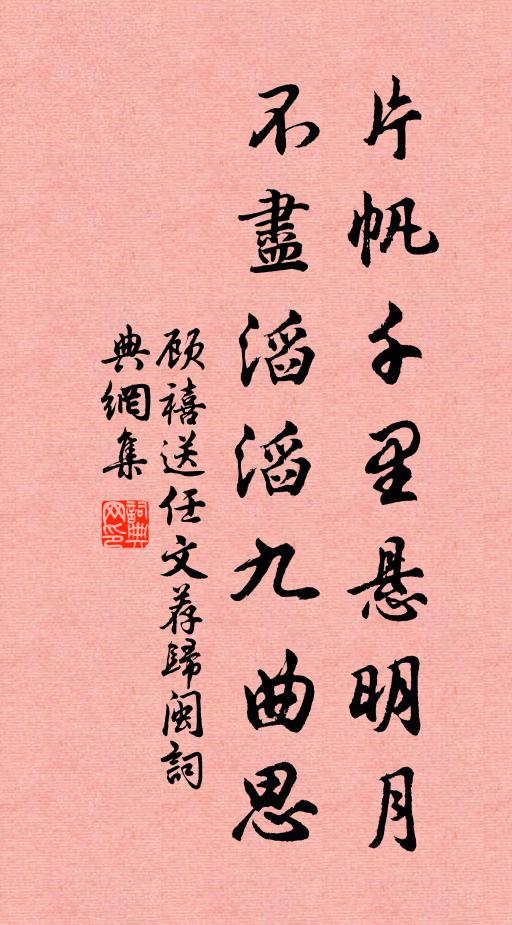 片帆千里悬明月
不盡滔滔九曲思
顾禧送任文荐歸闽詞
典網集
詞典
网印